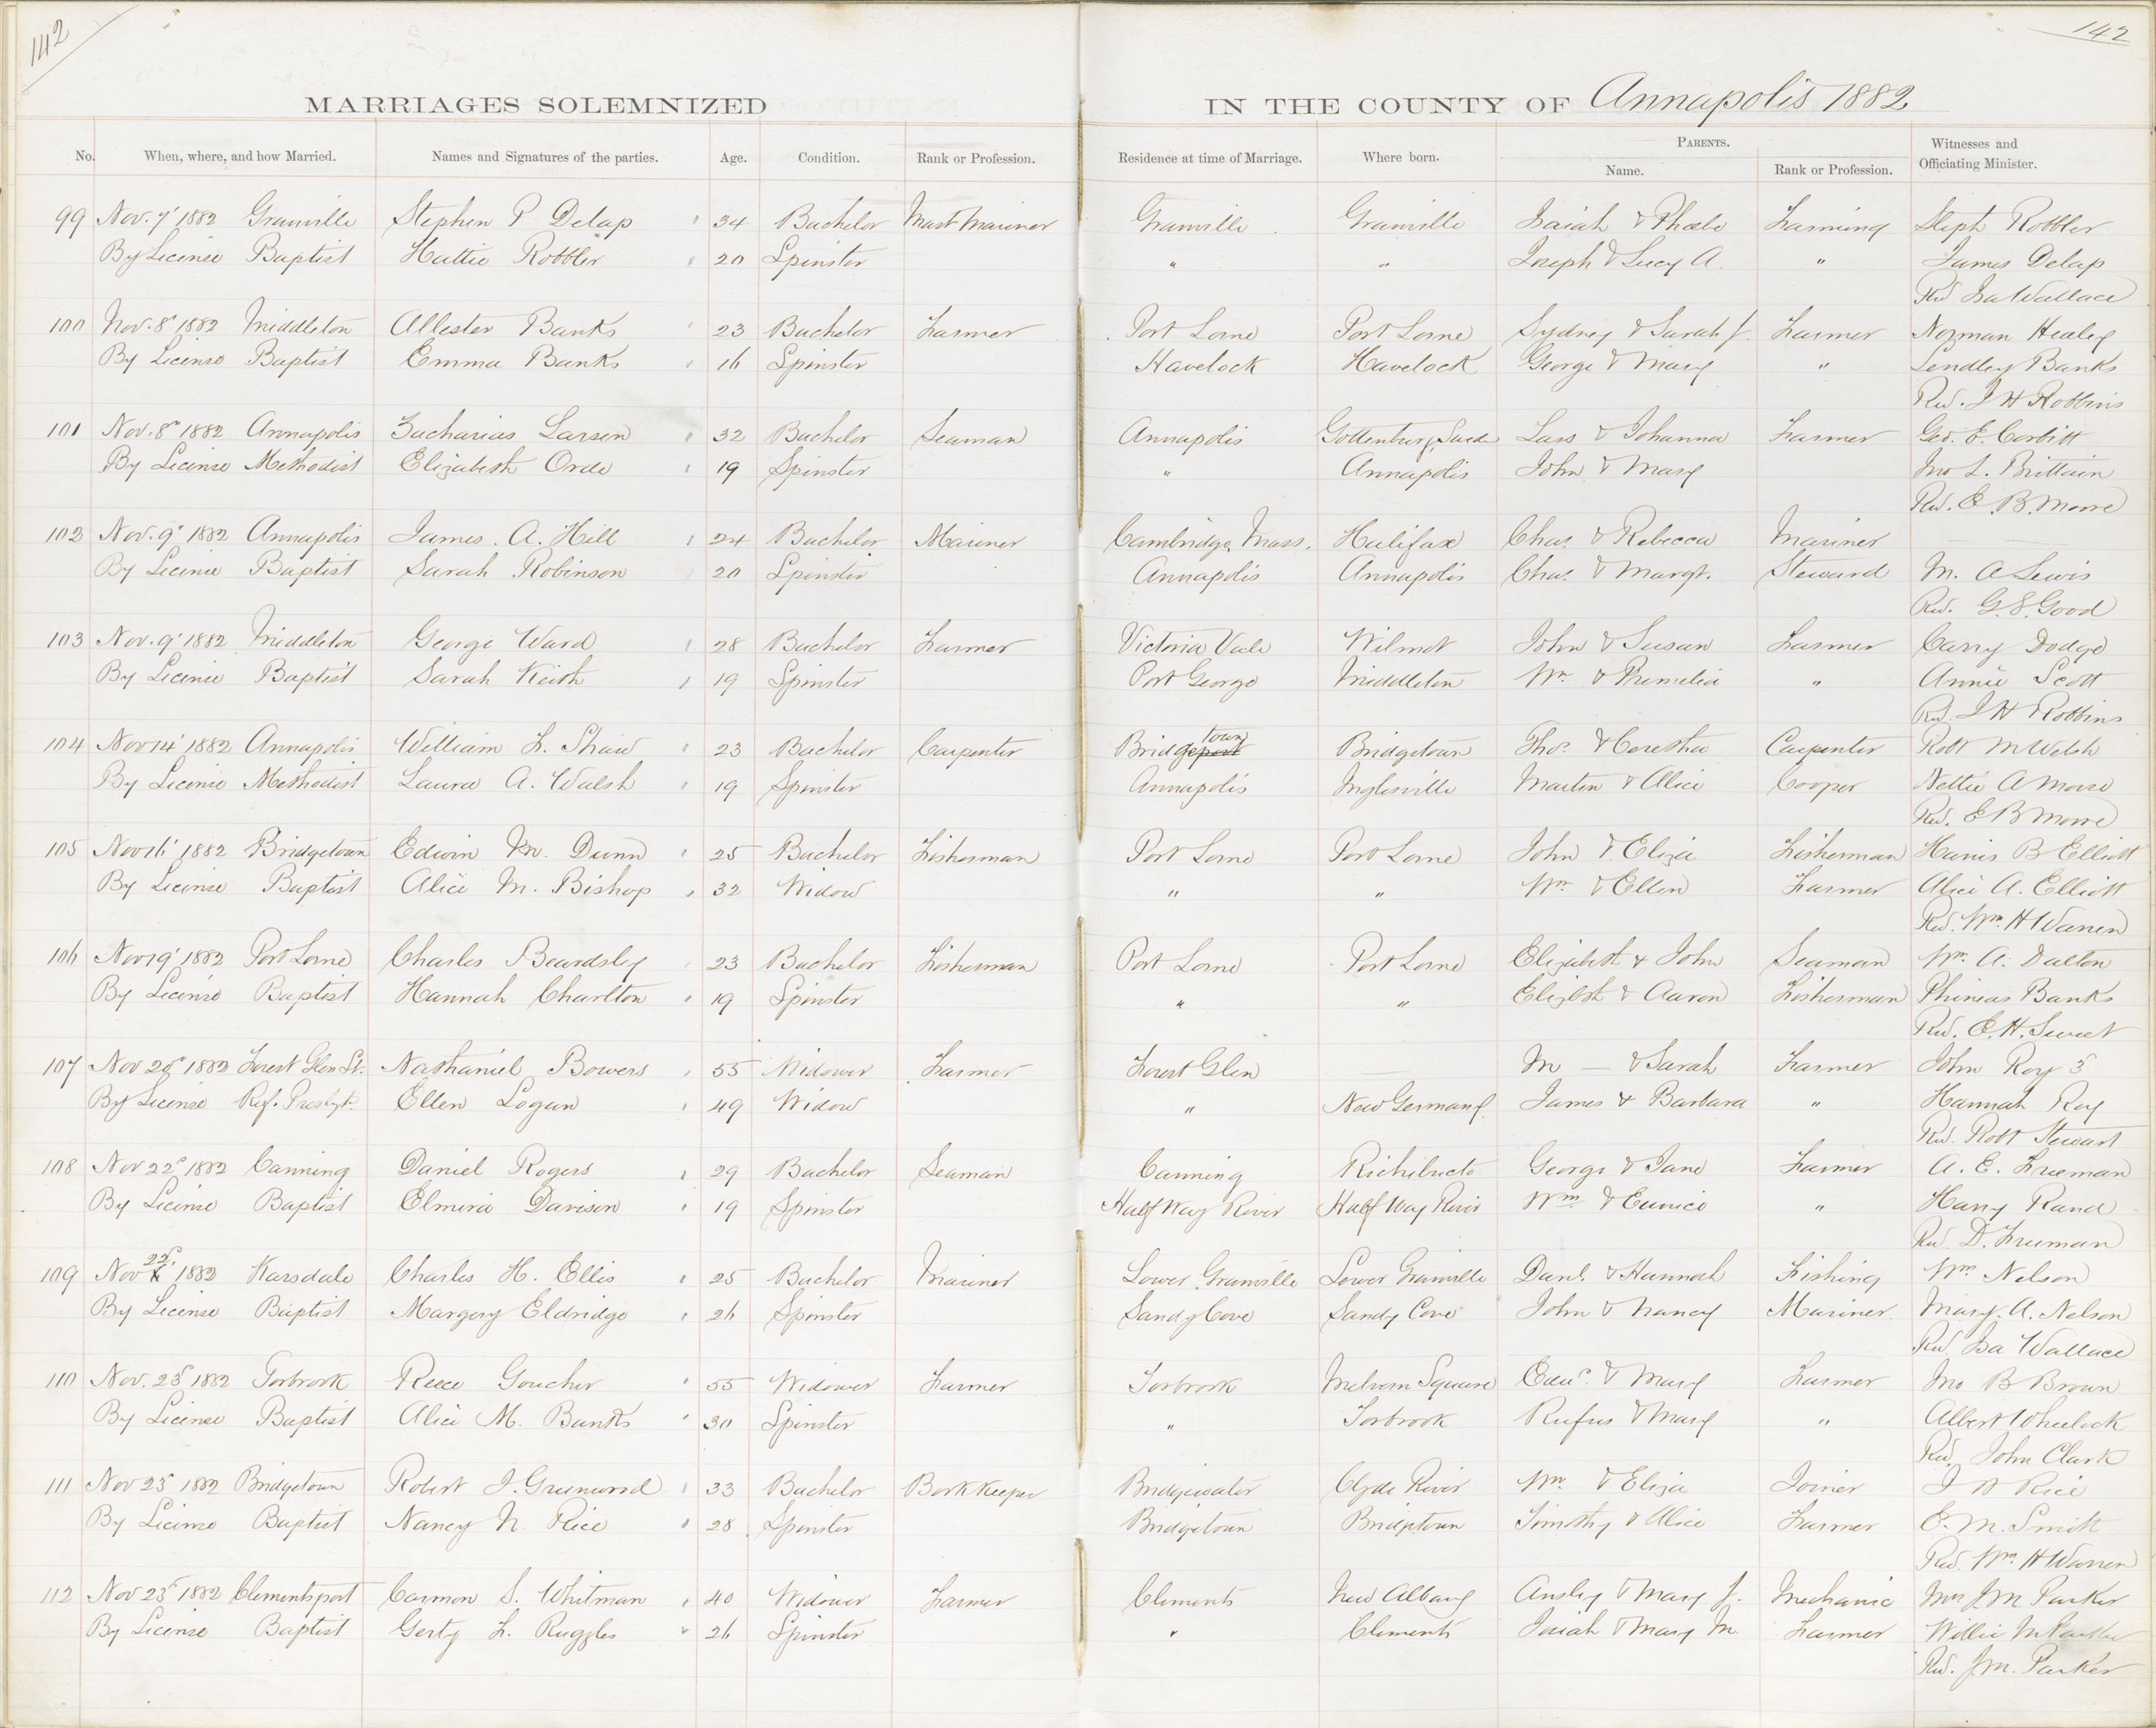 142
142
MARRIAGES SOLEMNIZED IN THE COUNTY OF Annapolis 1882
No. When, where, and how Married. Names and Signatures of the parties. Age. Condition. Rank or Profession. Residence at time of Marriage. Where born. PARENTS. Name. Rank or Profession. Witnesses and Officiating Minister.
99 Nov. 7' 1882 Granville Stephen P Delap 34 Bachelor Mast Mariner Granville Granville Isaiah & Phœbe Farming Steph Robbler
By License Baptist Hattie Robbler 20 Spinster " " Joseph & Lucy A. " James Delap
Rev Isa Wallace
100 Nov. 8' 1882 Middleton Allester Banks 23 Bachelor Farmer Port Lorne Port Lorne Sydney & Sarah J. Farmer Norman Healey
By License Baptist Emma Banks 16 Spinster Havelock Havelock George & Mary " Lendley Banks
Rev. J H Robbins
101 Nov. 8" 1882 Annapolis Zacharias Larsen 32 Bachelor Seaman Annapolis Gottenburg, Swede Lars & Johanna Farmer Geo. E. Corbitt
By License Methodist Elizabeth Orde 19 Spinster " Annapolis John & Mary Jno L. Brittain
Rev. E. B. Moore
102 Nov. 9' 1882 Annapolis James A. Hill 24 Bachelor Mariner Cambridge, Mass. Halifax Chas. & Rebecca Mariner
By License Baptist Sarah Robinson 20 Spinster Annapolis Annapolis Chas. & Margt. Steward M. A Lewis
Rev. G. S. Good
103 Nov. 9' 1882 Middleton George Ward 28 Bachelor Farmer Victoria Vale Wilmot John & Susan Farmer Carry Dodge
By License Baptist Sarah Keith 19 Spinster Port George Middleton Wm & Permelia " Annie Scott
Rev. J H Robbins
104 Nov 14' 1882 Annapolis William F. Shaw 23 Bachelor Carpenter Bridgeport town Bridgetown Thos. & Carpenter Robt M Welsh
By License Methodist Laura A. Walsh 19 Spinster Annapolis Inglesville Martin & Alice Cooper Nettie A Morse
Rev. E B Moore
105 Nov 16' 1882 Bridgetown Edwin M. Dunn 25 Bachelor Fisherman Port Lorne Port Lorne John & Eliza Fisherman Harris B Elliott
By License Baptist Alice M. Bishop 32 Widow " " Wm & Ellen Farmer Alice A. Elliott
Rev. Wm H Warren
106 Nov 19' 1882 Port Lorne Charles Beardsley 23 Bachelor Fisherman Port Lorne Port Lorne Elizabeth & John Seaman Wm A. Dalton
By License Baptist Hannah Charlton 19 Spinster " " Elizbth & Aaron Fisherman Phineas Banks
Rev. E. H. Sweet
107 Nov 20" 1882 Forest Glen St. Nathaniel Bowers 55 Widower Farmer Forest Glen — M — & Sarah Farmer John Roy 3
By License Ref. Presbyt. Ellen Logan 49 Widow " New Germany James & Barbara " Hannah Roy
Rev. Robt Stewart
108 Nov 22d 1882 Canning Daniel Rogers 29 Bachelor Seaman Canning Richibucto George & Jane Farmer A. E. Freeman
By License Baptist Elmira Davison 19 Spinster Half Way River Half Way River Wm & Eunice " Harry Rand
Rev. D. Freeman
109 Nov 22' 1882 Karsdale Charles H. Ellis 25 Bachelor Mariner Lower Granville Lower Granville Danl. & Hannah Fishing Wm Nelson
By License Baptist Margery Eldridge 26 Spinster Sandy Cove Sandy Cove John & Nancy Mariner Mary A. Nelson
Rev. Isa Wallace
110 Nov. 23d 1882 Torbrook Reece Goucher 55 Widower Farmer Torbrook Melvern Square Edwd. & Mary Farmer Jno B Brown
By License Baptist Alice M. Banks 30 Spinster " Torbrook Rufus & Mary " Albert Wheelock
Rev. John Clark
111 Nov 23d 1882 Bridgetown Robert J. Greenwood 33 Bachelor Book Keeper Bridgewater Clyde River Wm & Eliza Joiner J W Rice
By License Baptist Nancy N. Rice 28 Spinster Bridgetown Bridgetown Timothy & Alice Farmer E. M. Smith
Rev Wm H Warren
112 Nov 23d 1882 Clementsport Carmon S. Whitman 40 Widower Farmer Clements New Albany Ansley & Mary J. Mechanic Mrs J. M. Parker
By License Baptist Gerty L. Ruggles 26 Spinster " Clements Isaiah & Mary M. Farmer Willie M Parker
Rev. J. M. Parker